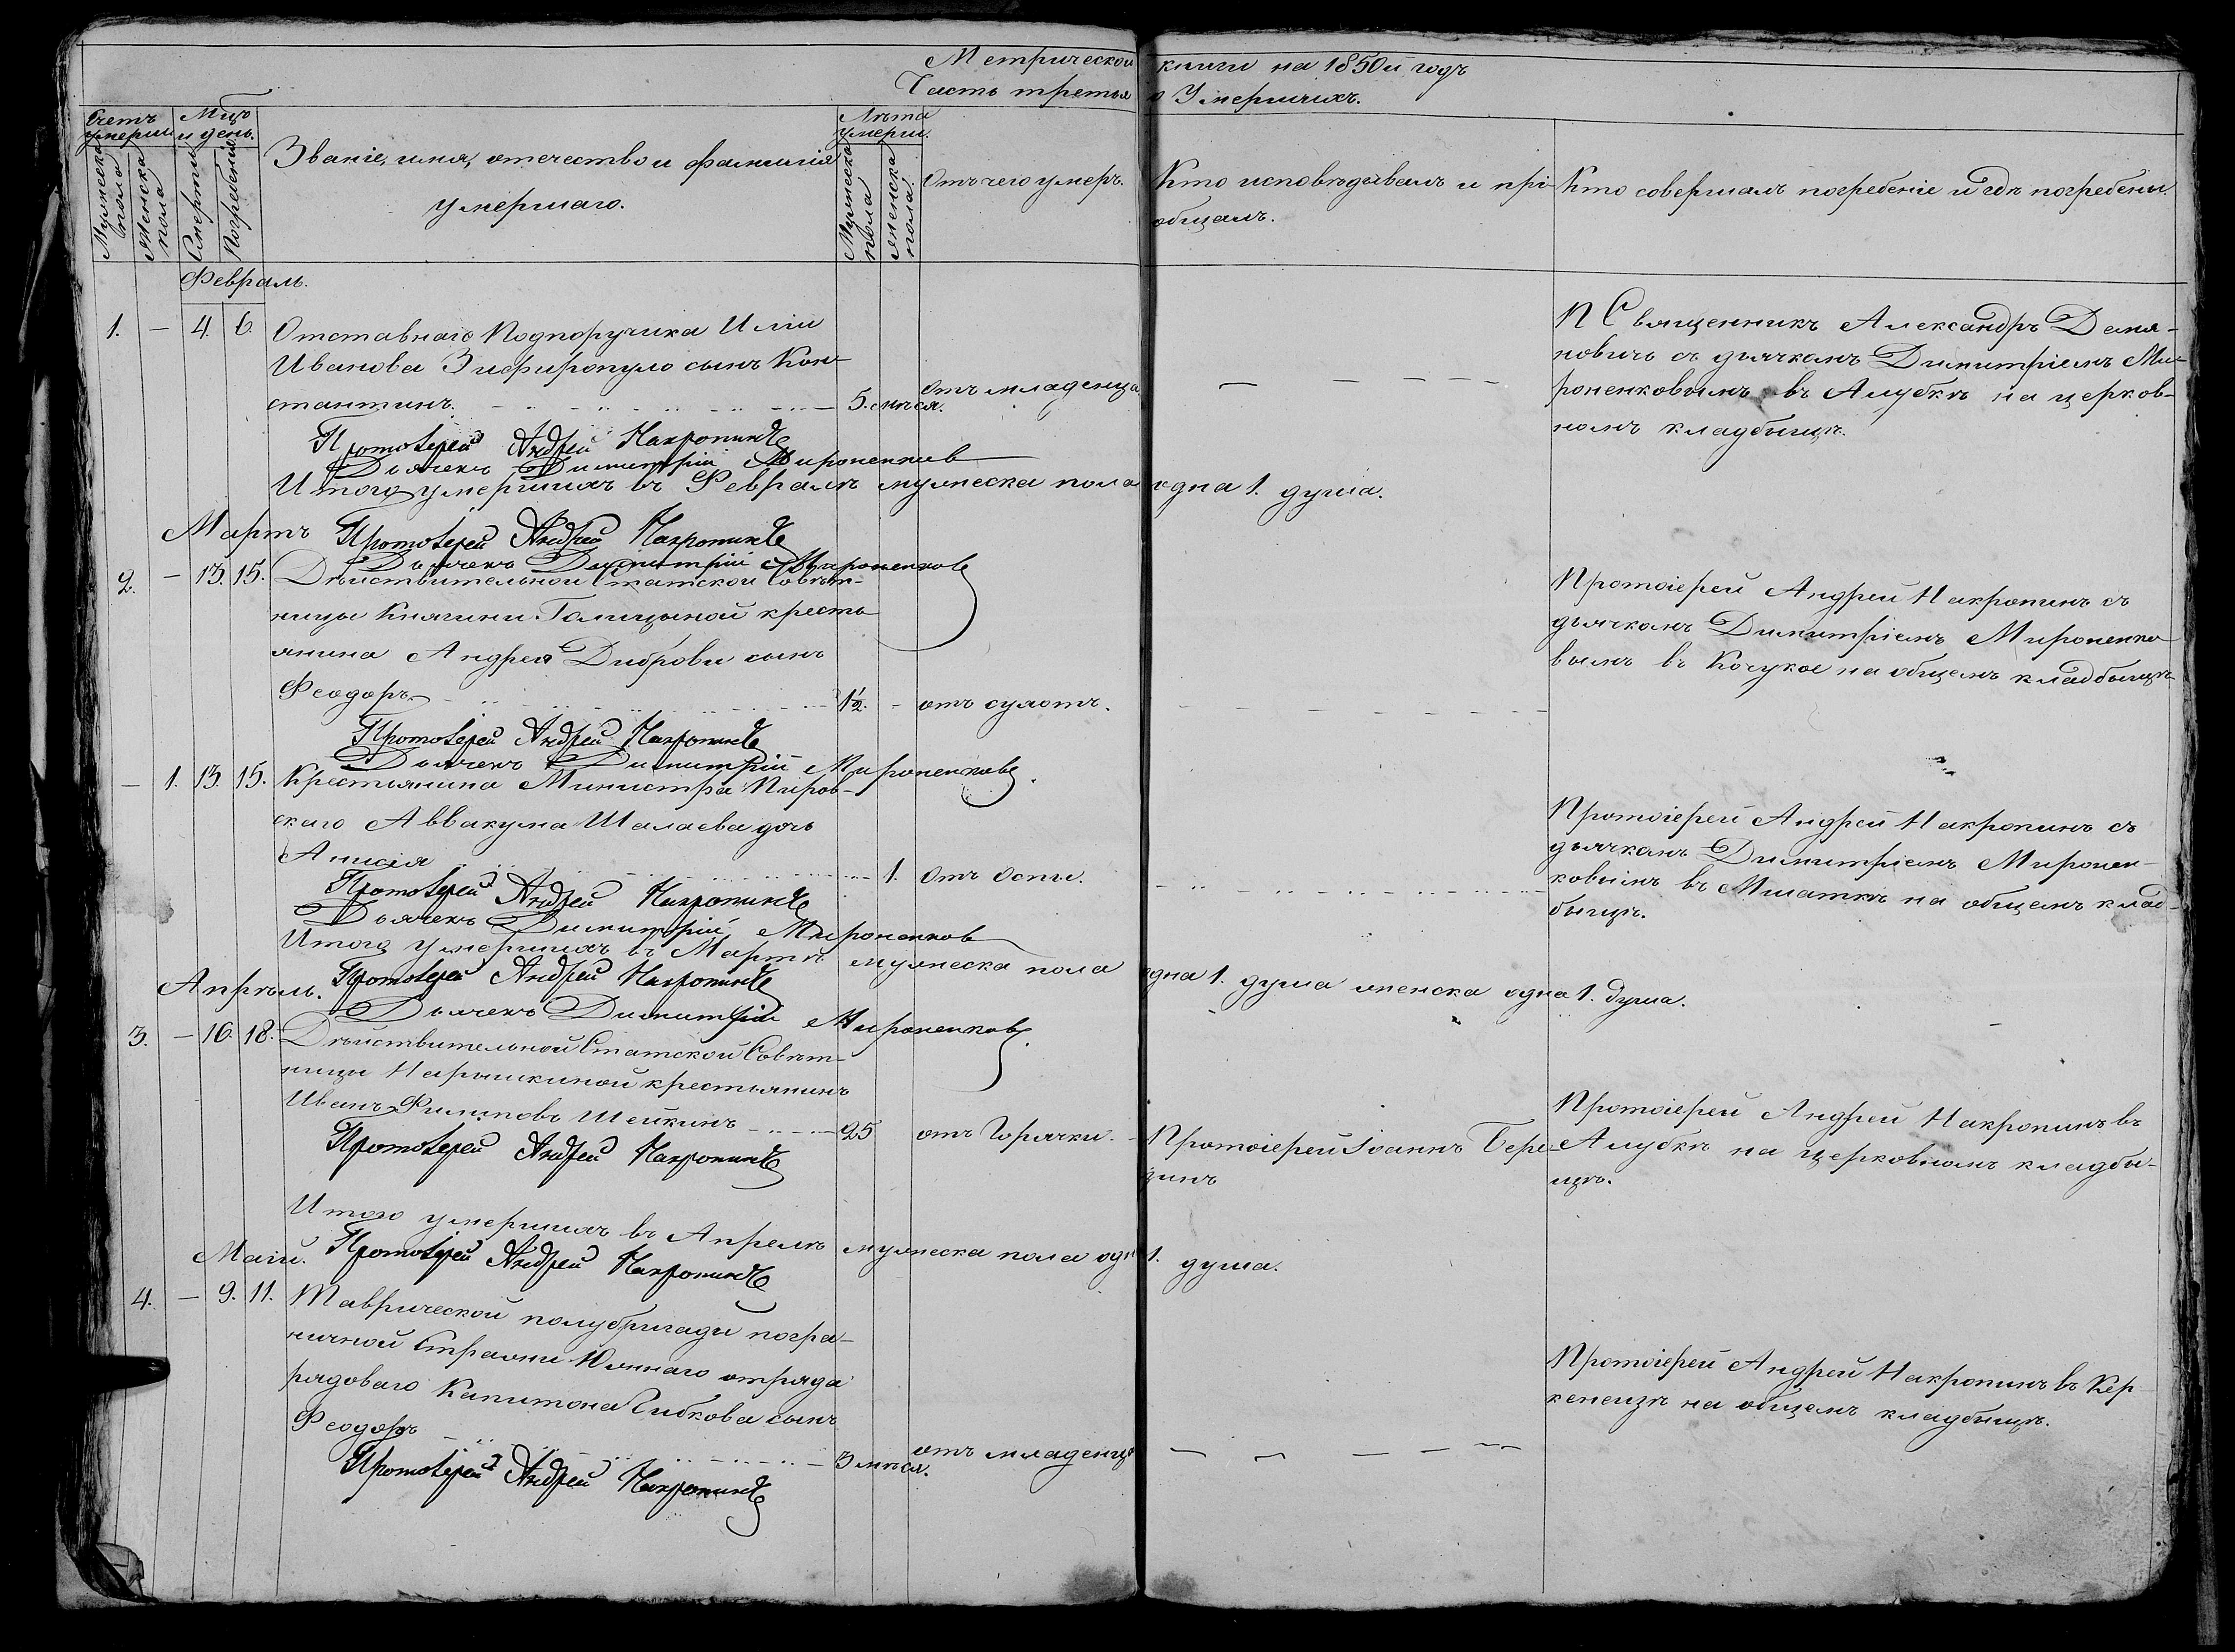 Метрической книги на 1850й годъ
Часть третья о Умершихъ.
Счетъ умерши
Мцъ и день.
Званіе, имя, отечество и фамилія
умершаго.
Лѣта умерш.
Отъ чего умеръ.
Кто исповѣдывалъ и прі-
общалъ.
Кто совершалъ погребеніе и гдѣ погребены.
Мужеска пола
Женска пола
Смерти
Погребенія
Мужеска пола
Женска пола.
Февраль.
1. — 4. 6. Отставнаго Подпоручика Иліи
Иванова Зифиропуло сынъ Кон-
стантинъ. 5. мѣся. отъ младенца
П Священникъ Александръ Демя-
новичъ съ дьячкомъ Димитріемъ Ми-
роненковымъ въ Алубкѣ на церков-
номъ кладбищѣ.
Протоіерей Андрей Накропинъ
Дьячекъ Димитрій Мироненков
Итого умершихъ въ Февралѣ мужеска пола одна 1. душа.
Мартъ
Протоіерей Андрей Накропинъ
Дьячекъ Димитрій Мироненковъ
2. — 13. 15. Дѣйствительной Статской Совѣт-
ницы Княгини Голицыной кресть-
янина Андрея Диброви сынъ
Феодоръ. 1½. - отъ сухотъ.
Протоіерей Андрей Накропинъ съ
дьячкомъ Димитріемъ Мироненко-
вымъ въ Кочукое на общемъ кладбищѣ
Протоіерей Андрей Накропинъ
Дьячекъ Димитрій Мироненковъ.
— 1. 13. 15. Крестьянина Министра Перов-
скаго Аввакума Шалаева дочь
Анисія 1. Отъ Оспы.
Протоіерей Андрей Накропинъ съ
дьячкомъ Димитріемъ Миронен-
ковымъ въ Мшаткѣ на общемъ клад-
бищѣ.
Протоіерей Андрей Накропинъ
Дьячекъ Димитрій Мироненков
Итого умершихъ въ Мартѣ мужеска пола одна 1. душа женска одна 1. душа.
Апрѣль.
Протоіерей Андрей Накропинъ
Дьячекъ Димитрій Мироненковъ.
3. — 16. 18. Дѣйствительной Статской Совѣт-
ницы Нарышкиной крестьянинъ
Иванъ Филиповъ Шейкинъ 25 отъ Горячки.
Протоіерей Іоаннъ Бере-
зинъ
Протоіерей Андрей Накропинъ въ
Алубкѣ на церковномъ кладби-
щѣ.
Протоіерей Андрей Накропинъ
Итого умершихъ въ Апрелѣ мужеска пола одн 1. душа.
Маій.
Протоіерей Андрей Накропинъ
4. — 9. 11. Таврической полубригады погра-
ничной Стражи Южнаго отряда
рядоваго Капитона Сибкова сынъ
Феодоръ 3 мѣся. отъ младенца
Протоіерей Андрей Накропинъ въ Кер-
кенеизѣ на общемъ кладбищѣ.
Протоіерей Андрей Накропинъ